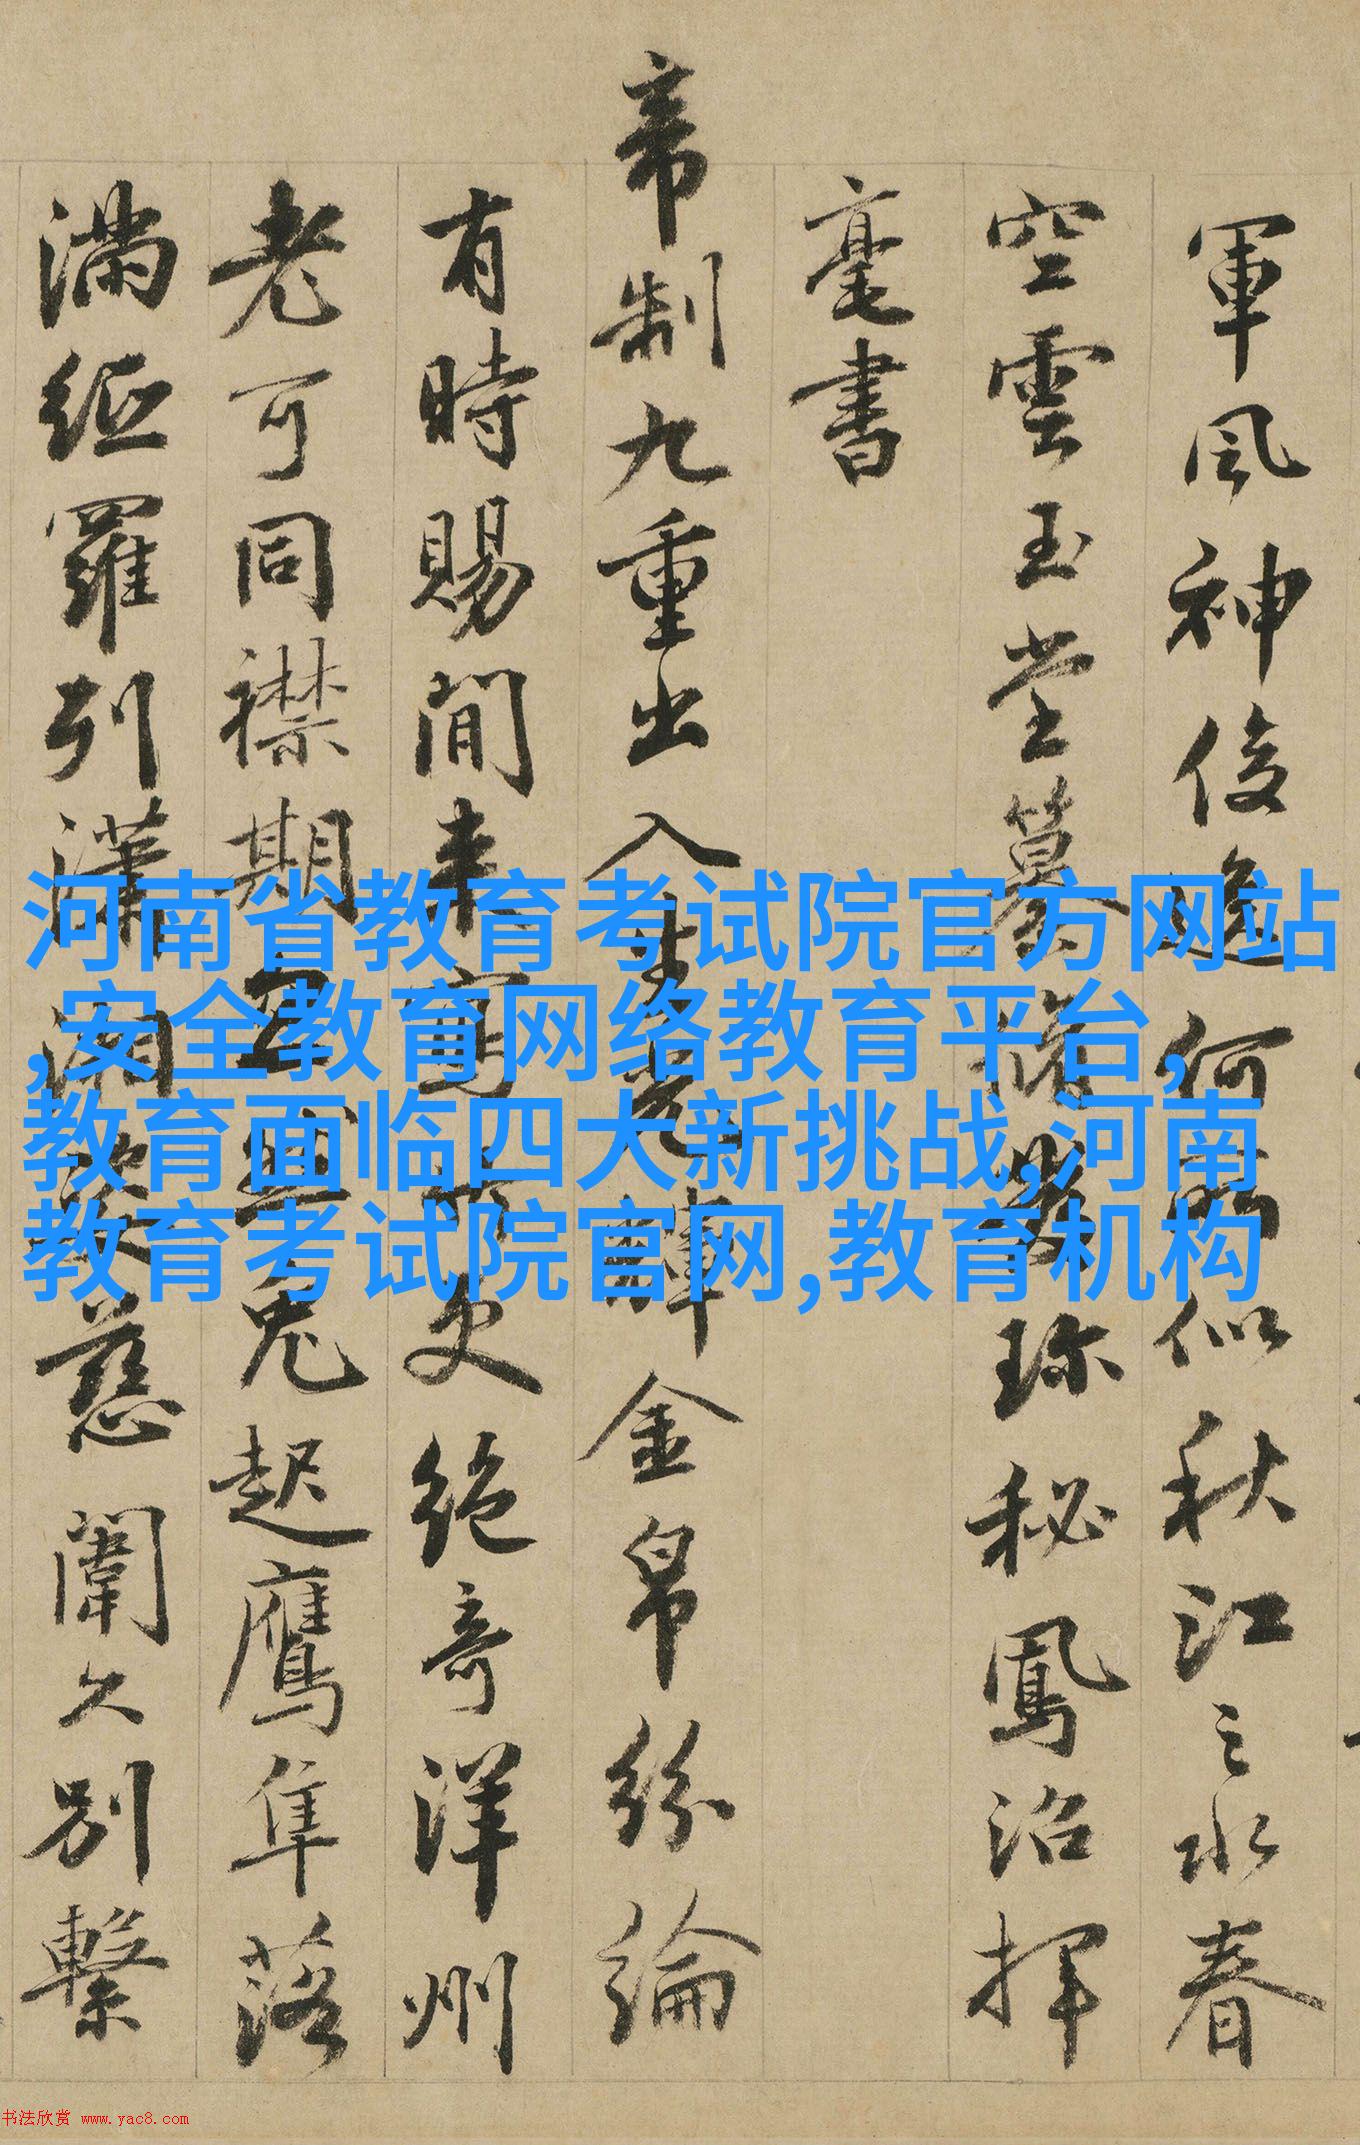 軍風神俊逸何所似秋江之水春
空雲玉堂摹搨發珍秘鳳沼揮
毫書
帝制九重出入生光輝金帛紛綸
有時賜閒來寫史絕奇洋州
老可同襟期兔起鷹隼落
滿紙羅列瀟湘姿慈闈久別繫
河南省教育考试院官方网站
,安全教育网络教育平台,
教育面临四大新挑战,河南
教育考试院官网,教育机构
书法欣赏 www.yac8.com